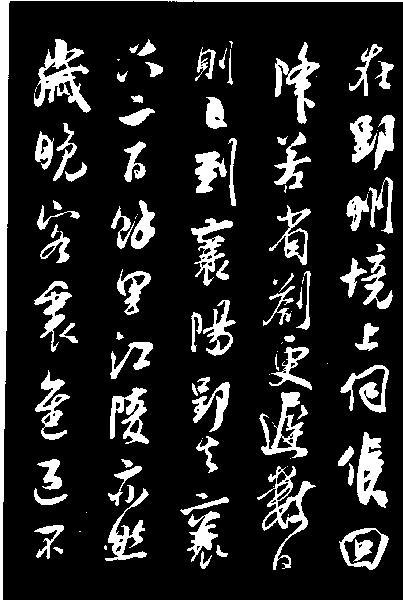 在郢州境上伺候回
降若省劄更遲數日
則已到襄陽郢去襄
只二百餘里江陵亦然
歲晚客裏不